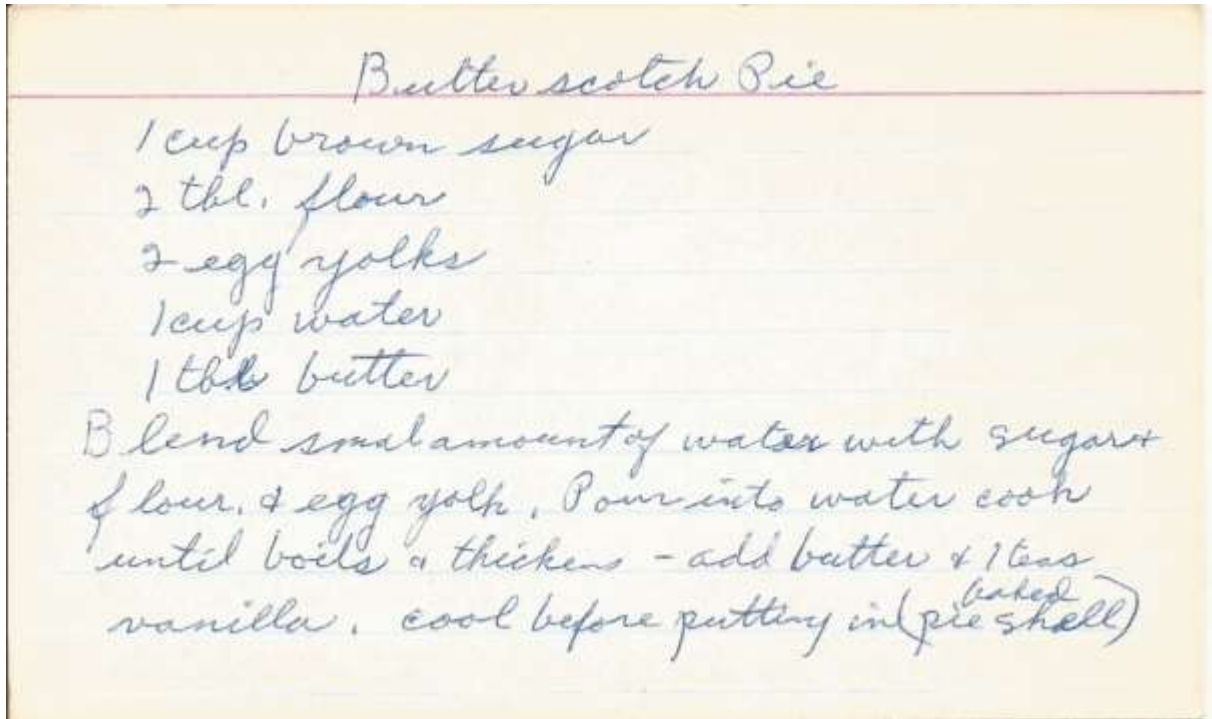 Butterscotch Pie
1 cup brown sugar
2 tbl. flour
2 egg yolks
1 cup water
1 tbl butter
Blend smal amount of water with sugar &
flour, & egg yolk. Pour into water cook
until boils & thickens - add butter & 1 teas
baked
vanilla. cool before putting in (pie shell)